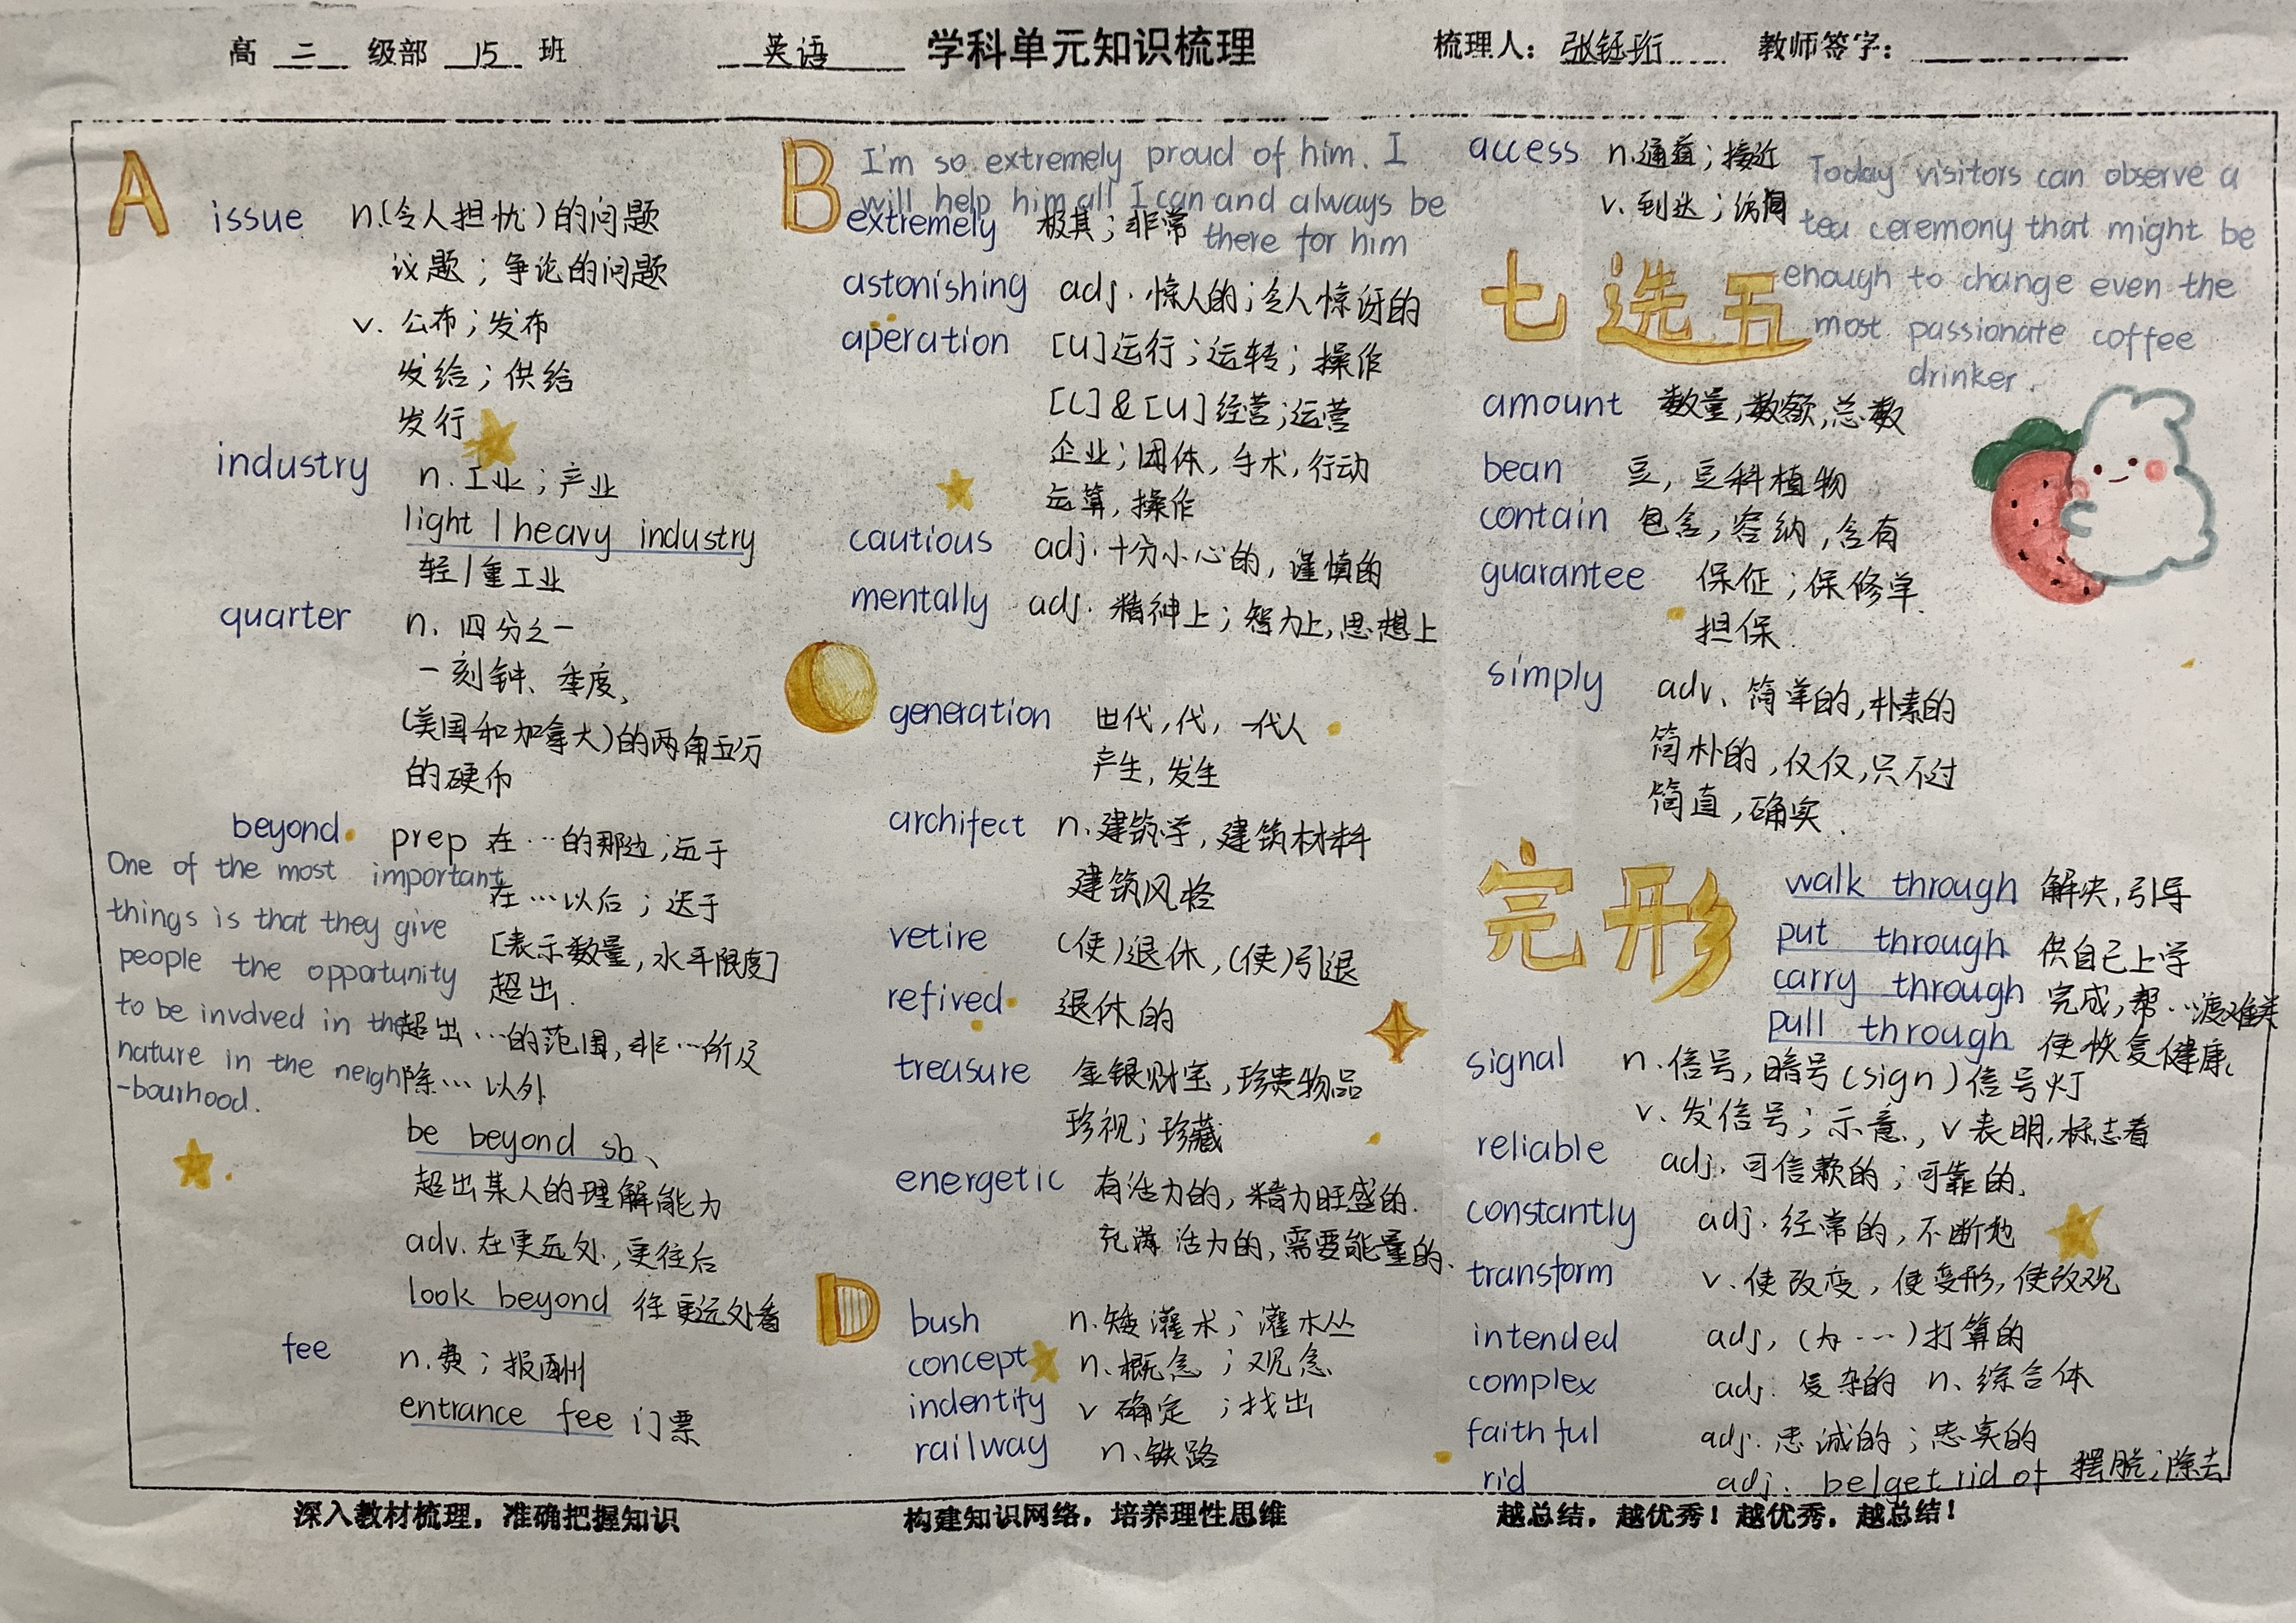 高 二 级部 15 班 英语 学科单元知识梳理 梳理人：张钰珩 教师签字：
A
issue n.(令人担忧)的问题
议题；争论的问题
v. 公布；发布
发给；供给
发行
industry n.工业；产业
light / heavy industry
轻/重工业
quarter n. 四分之一
一刻钟、季度、
(美国和加拿大)的两角五分
的硬币
beyond prep 在…的那边;远于
在…以后；迟于
[表示数量,水平限度]
超出.
超出…的范围,非…所及
除…以外
One of the most important
things is that they give
people the opportunity
to be involved in the
nature in the neigh
-bourhood.
be beyond sb、
超出某人的理解能力
adv.在更远处,更往后
look beyond 往更远处看
fee n.费；报酬
entrance fee 门票
B
I'm so extremely proud of him. I
will help him all I can and always be
there for him
extremely 极其；非常
astonishing adj.惊人的;令人惊讶的
aperation [U]运行；运转；操作
[C]&[U]经营;运营
企业;团体,手术,行动
运算,操作
cautious adj.十分小心的,谨慎的
mentally adj.精神上；智力上,思想上
generation 世代,代,一代人
产生,发生
architect n.建筑学,建筑材料
建筑风格
vetire (使)退休,(使)引退
refived 退休的
treasure 金银财宝,珍贵物品
珍视；珍藏
energetic 有活力的,精力旺盛的.
充满活力的,需要能量的.
D
bush n.矮灌木；灌木丛
concept n.概念；观念
indentify v 确定；找出
railway n、铁路
access n.通道；接近
v.到达；访问
Today visitors can observe a
tea ceremony that might be
enough to change even the
most passionate coffee
drinker.
七选五
amount 数量,数额,总数
bean 豆,豆科植物
contain 包含,容纳,含有
guarantee 保征；保修单.
担保.
simply adv、简单的,朴素的
简朴的,仅仅,只不过
简直,确实.
完形
walk through 解决,引导
put through 供自己上学
carry through 完成,帮…渡难关
pull through 使恢复健康.
signal n.信号,暗号(sign)信号灯
v.发信号；示意, v表明,标志着
reliable adj.可信赖的；可靠的.
constantly adj.经常的,不断地
transform v.使改变,使变形,使改观
intended adj,(为…)打算的
complex adj.复杂的 n、综合体
faithful adj.忠诚的；忠实的
rid adj. be/get rid of 摆脱；除去
深入教材梳理，准确把握知识
构建知识网络，培养理性思维
越总结，越优秀！越优秀，越总结！